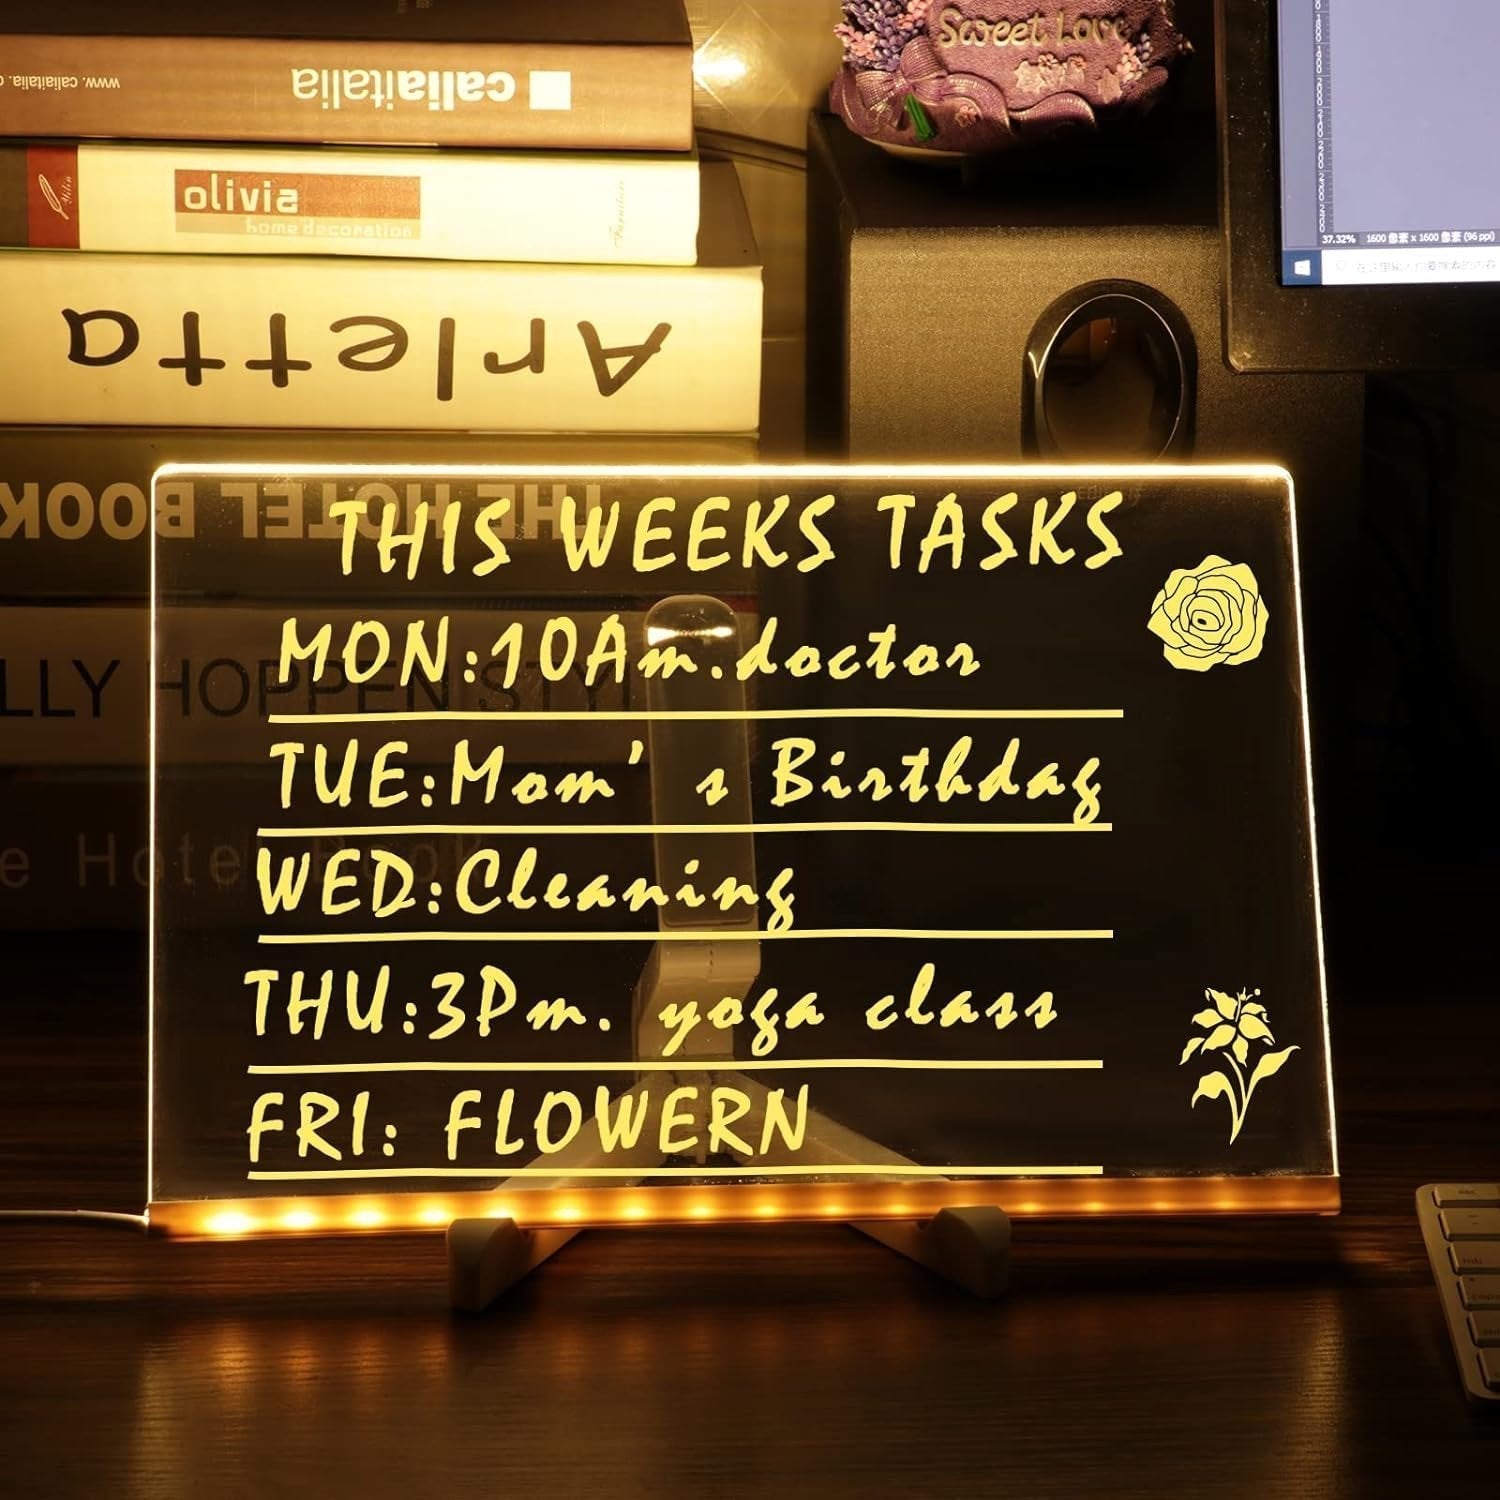 Sweet Love
caliaitalia
www.caliaitalia.
olivia
home decoration
Furniture
Arletta
THE HOTEL BOOK
LLY HOPPEN STYL
e Hotel Book
37.32% 1600 像素 x 1600 像素 (96 ppi)
在这里输入你要搜索的内容
THIS WEEKS TASKS
MON:10Am.doctor
TUE:Mom's Birthday
WED:Cleaning
THU:3Pm. yoga class
FRI: FLOWERN